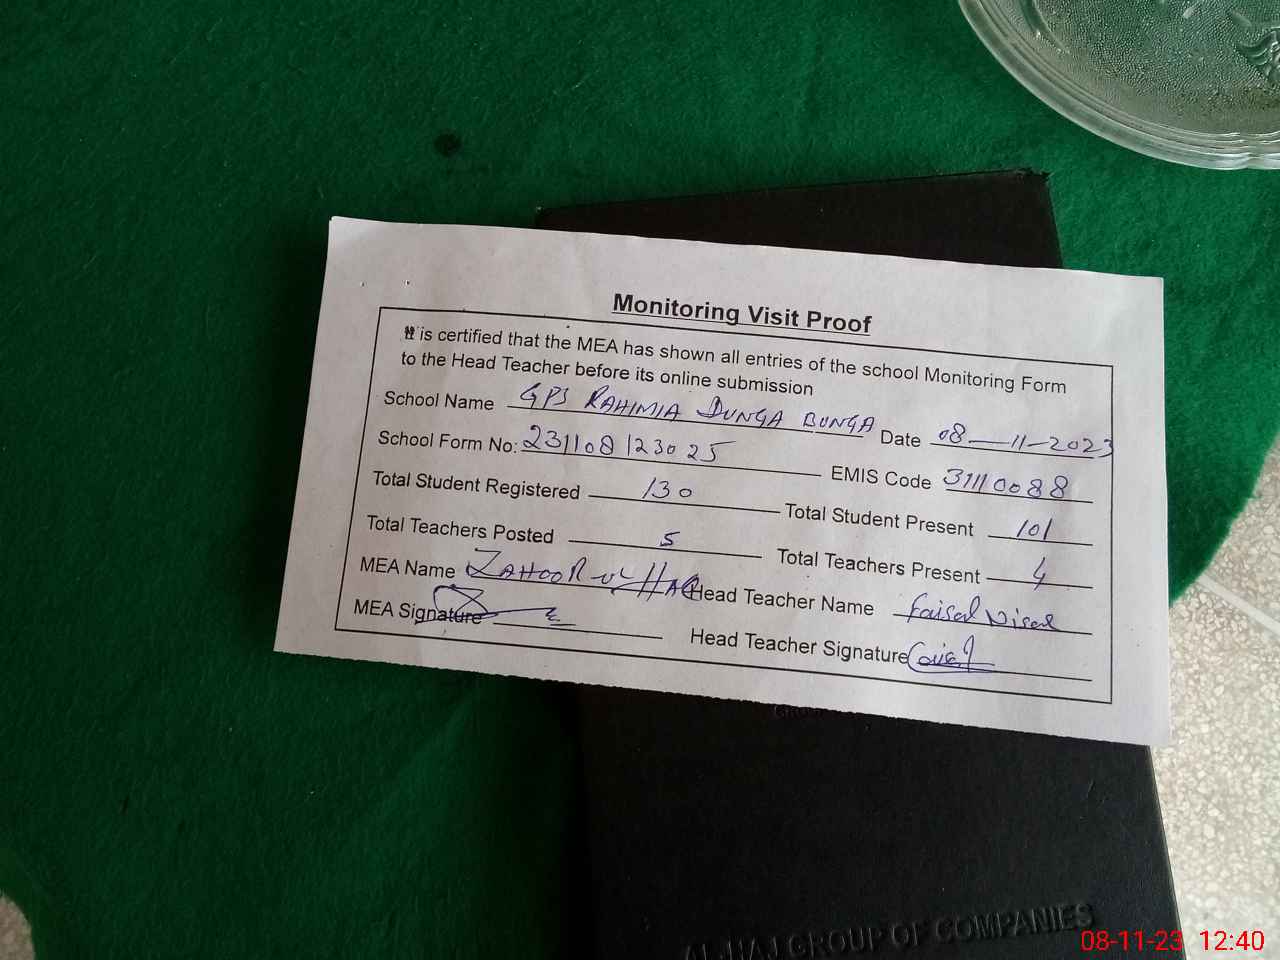 Monitoring Visit Proof
It is certified that the MEA has shown all entries of the school Monitoring Form
to the Head Teacher before its online submission
School Name GPS RAHIMIA DUNGA BUNGA Date 08-11-2023
School Form No: 231108123025 EMIS Code 31110088
Total Student Registered 130 Total Student Present 101
Total Teachers Posted 5 Total Teachers Present 4
MEA Name ZAHOOR ul HAQ Head Teacher Name Faisal Nisar
MEA Signature Head Teacher Signature
AL-HAJ GROUP OF COMPANIES
08-11-23 12:40